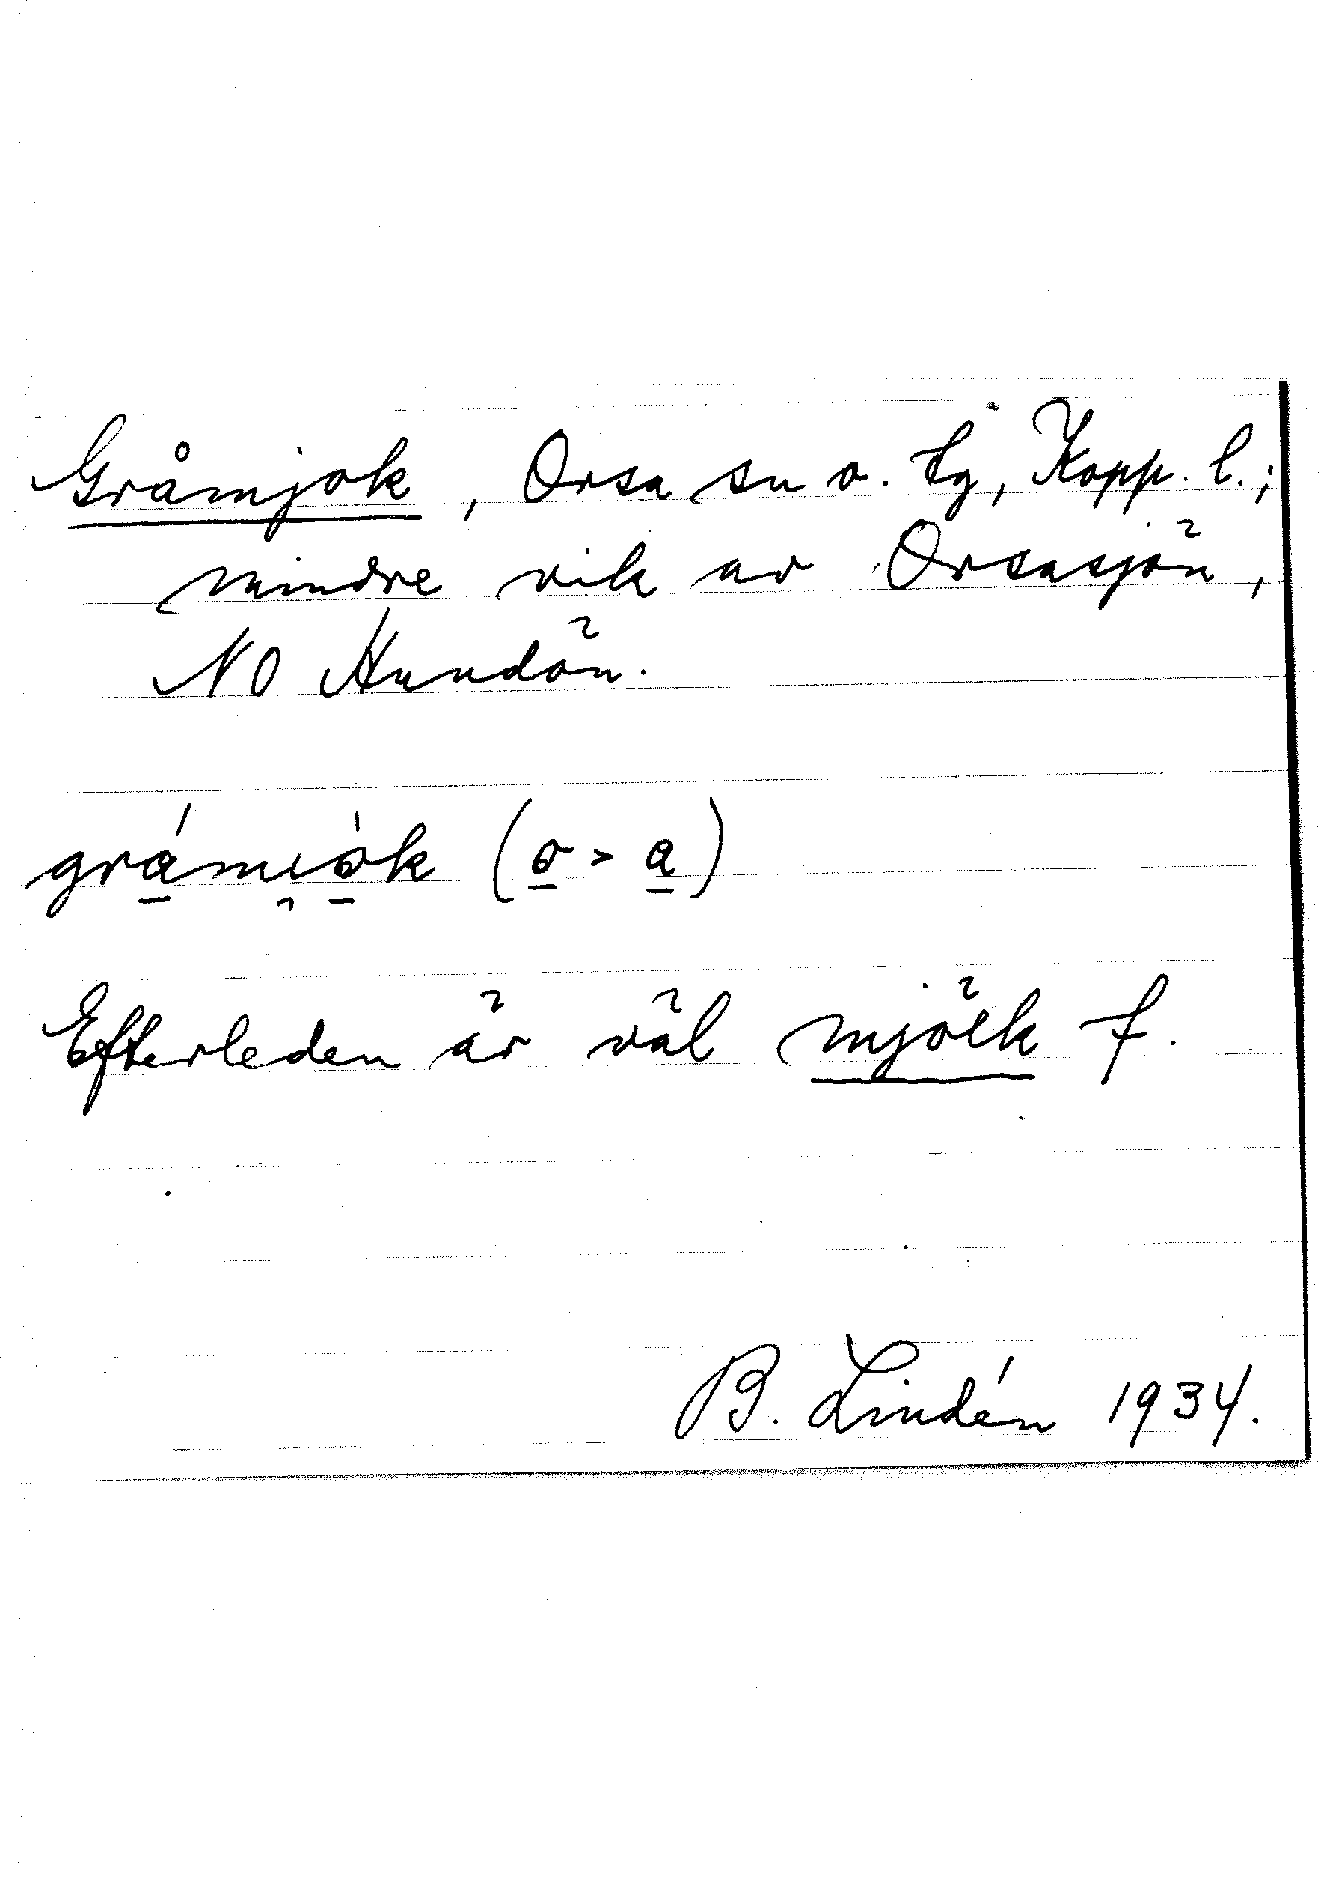 Gråmjok, Orsa sn o. tg, Kopp. l.;
mindre vik av Orsasjön,
NO Hundön.
grám̱i̯òk (o > a)
Efterleden är väl mjölk f.
B. Lindén 1934.